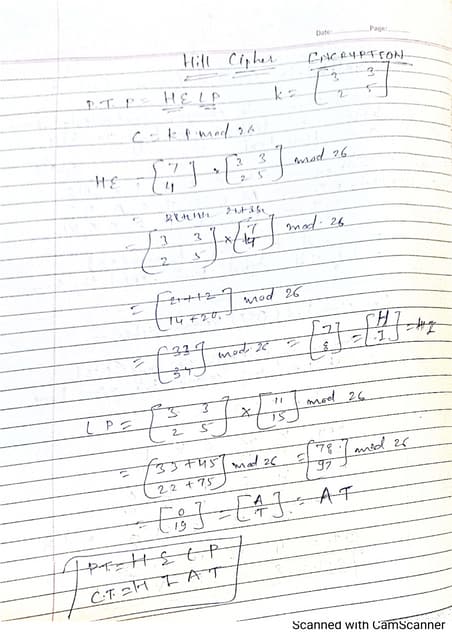 Date: Page:
Hill Cipher ENCRYPTION
P.T. P = HELP K = [3 3
2 5]
C = K P mod 26
HE = [7
4] × [3 3
2 5] mod 26
= [3 3
2 5] × [7
4] mod 26
= [21+12
14+20] mod 26
= [33
34] mod 26 = [7
8] = [H
I] = HI
LP = [3 3
2 5] × [11
15] mod 26
= [33+45
22+75] mod 26 = [78
97] mod 26
= [0
19] = [A
T] = AT
PT = H E L P
C.T. = H I A T
Scanned with CamScanner